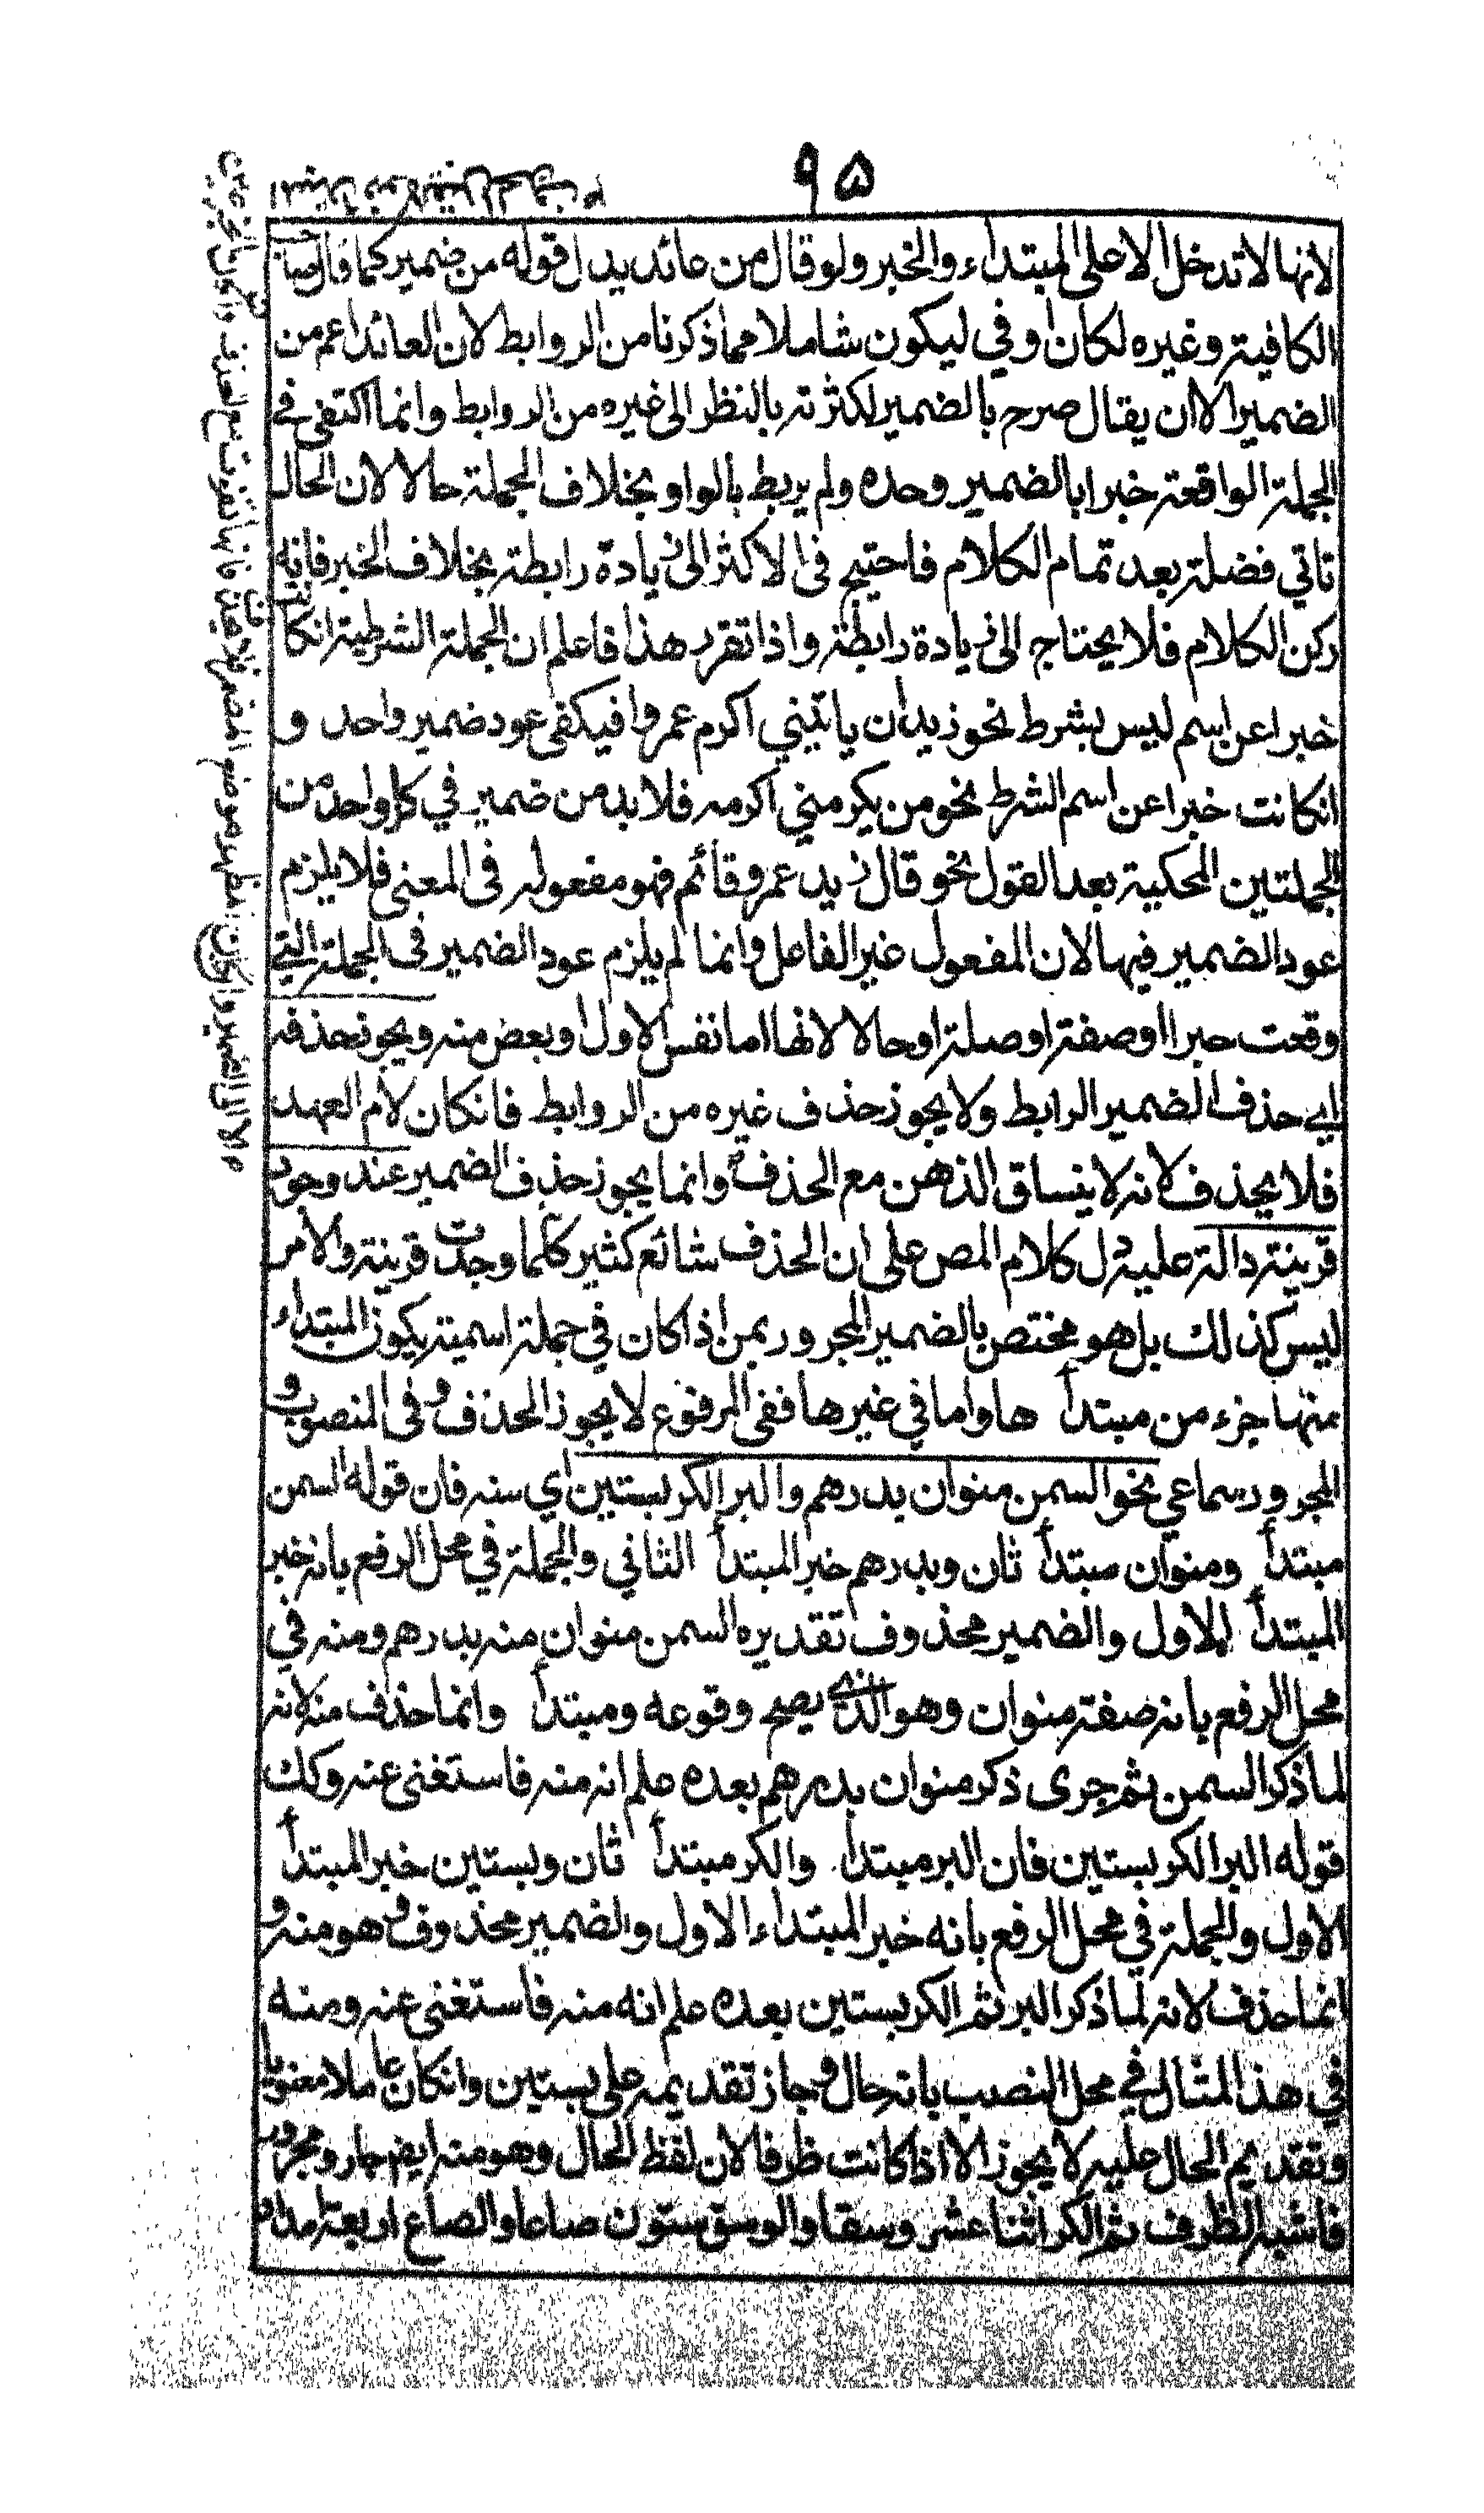 ٩٥
لانها لا تدخل الا على المبتداء والخبر ولو قال من عائد يدل قوله من ضمير كما قال صاحب
الكافية وغيره لكان اوفي ليكون شاملا مما ذكرنا من الروابط لان العائد اعم من
الضمير الا ان يقال صرح بالضمير لكثرته بالنظر الى غيره من الروابط وانما اكتفى في
الجملة الواقعة خبرا بالضمير وحده ولم يربط بالواو بخلاف الجملة حالا لان الحال
تاتي فضلة بعد تمام الكلام فاحتيج فى الاكثر الى زيادة رابطة بخلاف الخبر فانه
ركن الكلام فلا يحتاج الى زيادة رابطة واذا تقرر هذا فاعلم ان الجملة الشرطية انكانت
خبرا عن اسم ليس بشرط نحو زيد ان ياتيني اكرم عمروا فيكفى عود ضمير واحد و
انكانت خبرا عن اسم الشرط نحو من يكرمني اكرمه فلا بد من ضمير في كل واحد من
الجملتين المحكية بعد القول نحو قال زيد عمرو قائم فهو مفعوله فى المعنى فلا يلزم
عود الضمير فيها لان المفعول غير الفاعل وانما لم يلزم عود الضمير فى الجملة التي
وقعت خبرا او صفة او صلة او حالا لانها اما نفس الاول او بعض منه ويجوز حذفه
اي حذف الضمير الرابط ولا يجوز حذف غيره من الروابط فانكان لام العهد
فلا يحذف لانه لا ينساق الذهن مع الحذف وانما يجوز حذف الضمير عند وجود
قرينة دالة عليه دل كلام المص على ان الحذف شائع كثير كلما وجدت قرينة والامر
ليس كذلك بل هو مختص بالضمير المجرور بمن اذا كان في جملة اسمية يكون المبتداء
منها جزء من مبتدأ ها واما في غيرها ففى المرفوع لا يجوز الحذف وفى المنصوب و
المجرور سماعي نحو السمن منوان بدرهم والبر الكر بستين اي سنه فان قوله السمن
مبتدأ ومنوان مبتدأ ثان وبدرهم خبر المبتدأ الثاني والجملة في محل الرفع بانه خبر
المبتدأ الاول والضمير محذوف تقديره السمن منوان منه بدرهم ومنه في
محل الرفع بانه صفة منوان وهو الذي يصح وقوعه ومبتدأ وانما حذف منه لانه
لما ذكر السمن ثم جرى ذكر منوان بدرهم بعده علم انه منه فاستغنى عنه وكك
قوله البر الكر بستين فان البر مبتدأ والكر مبتدأ ثان وبستين خبر المبتدأ
الاول والجملة في محل الرفع بانه خبر المبتداء الاول والضمير محذوف وهو منه و
انما حذف لانه لما ذكر البر ثم الكر بستين بعده علم انه منه فاستغنى عنه ومنه
في هذا المثال في محل النصب بانه حال وجاز تقديمه على بستين وانكان عاملا معنويا
وتقديم الحال عليه لا يجوز الا اذا كانت ظرفا لان لفظ الحال وهو منه ايضا جار ومجرور
فاشبه الظرف ثم الكر اثنا عشر وسقا والوسق ستون صاعا والصاع اربعة امداد